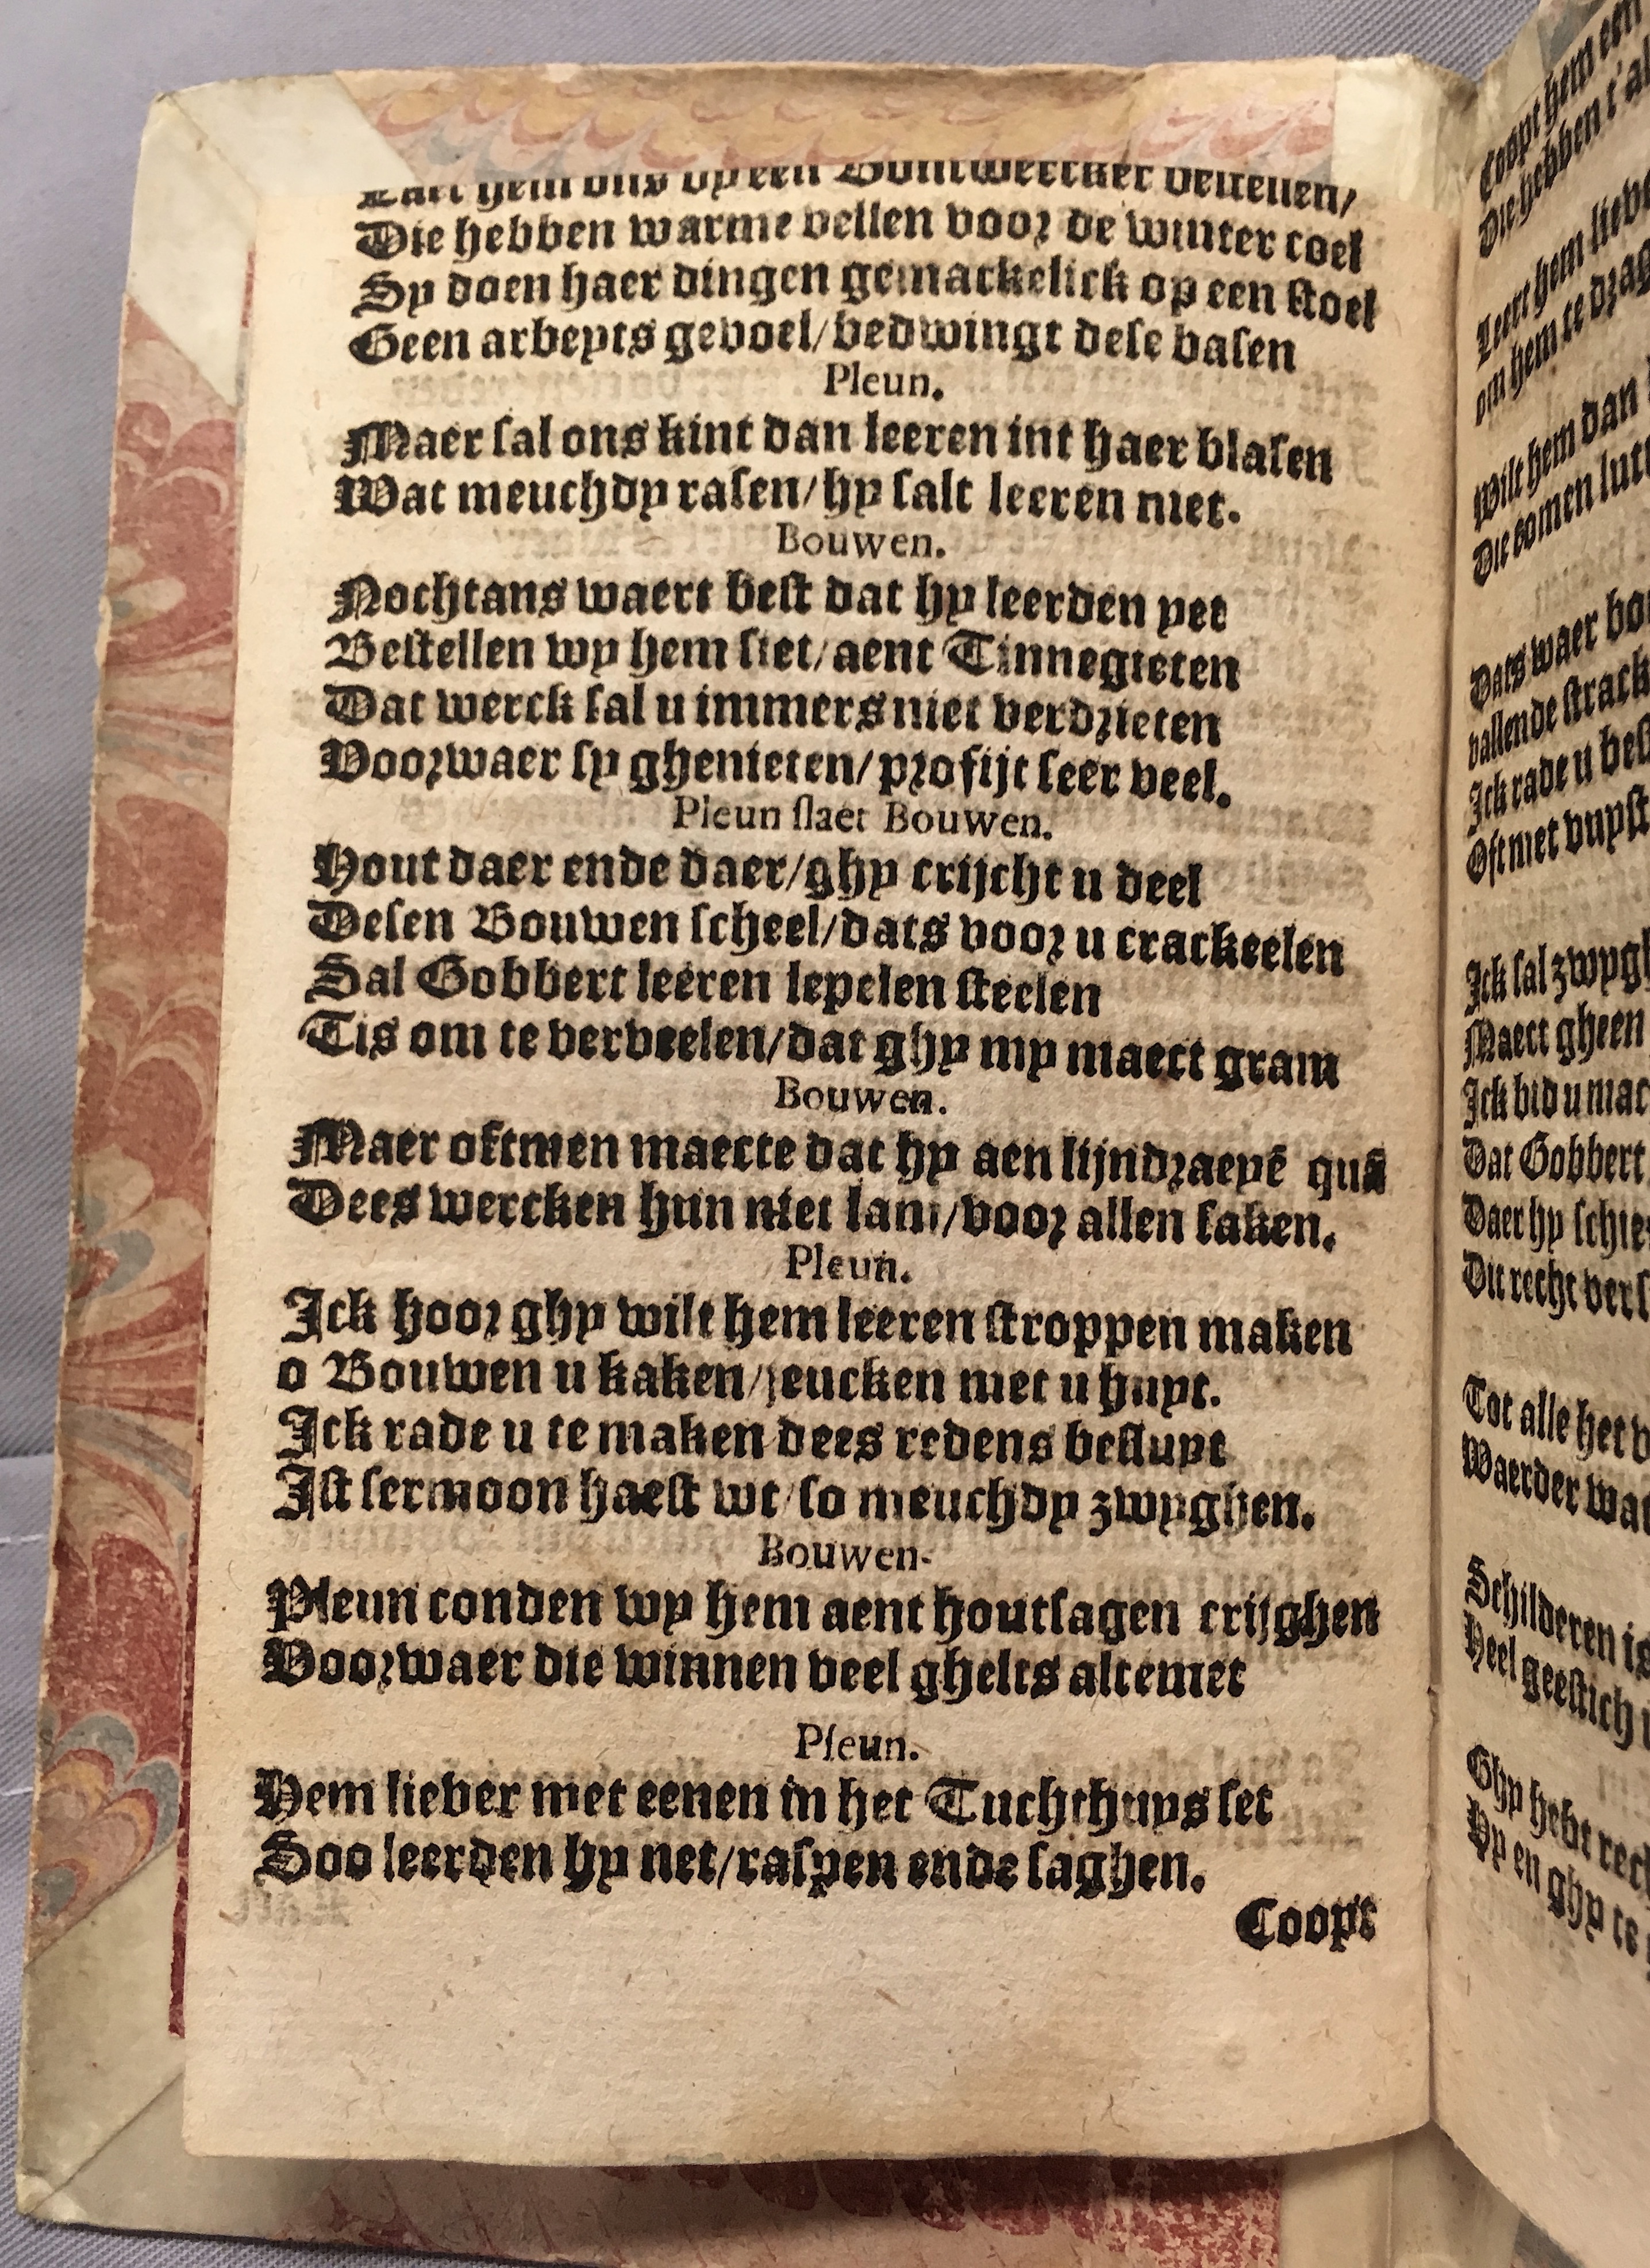 Laet hem ons op een Bontwercker bestellen/
Die hebben warme vellen voor de winter coel
Sy doen haer dingen gemackelick op een stoel
Geen arbeyts gevoel/bedwingt dese basen
Pleun.
Maer sal ons kint dan leeren int haer blasen
Wat meuchdy rasen/hy salt leeren niet.
Bouwen.
Nochtans waert best dat hy leerden yet
Bestellen wy hem siet/aent Tinnegieten
Dat werck sal u immers niet verdrieten
Voorwaer sy ghenieten/profijt seer veel.
Pleun slaet Bouwen.
Hout daer ende daer/ghy crijcht u deel
Desen Bouwen scheel/dats voor u crackeelen
Sal Gobbert leeren lepelen steelen
Tis om te verveelen/dat ghy my maect gram
Bouwen.
Maer oftmen maecte dat hy aen lijndraeyē quā
Dees wercken hun niet lam/voor allen saken.
Pleun.
Ick hoor ghy wilt hem leeren stroppen maken
o Bouwen u kaken/jeucken met u huyt.
Ick rade u te maken dees redens besluyt
Ist sermoon haest wt/so meuchdy zwyghen.
Bouwen-
Pleun conden wy hem aent houtsagen crijghen
Voorwaer die winnen veel ghelts altemet
Pleun.
Hem liever met eenen in het Tuchthuys set
Soo leerden hy net/raspen ende saghen.
Coopt
Coopt hem een
Die hebben t'al
Leert hem lieve
om hem te drag
Wilt hem dan
Die comen
Dats waer
vallende strack
Ick rade u bes
Oft met
Ick sal zwygh
Maect gheen
Ick bid u mac
Dat Gobbert
Daer hy schie
Dit recht vers
Tot alle het
Waerder wat
Schilderen is
Heel geestich
Ghy hebt rech
Hy en ghy te